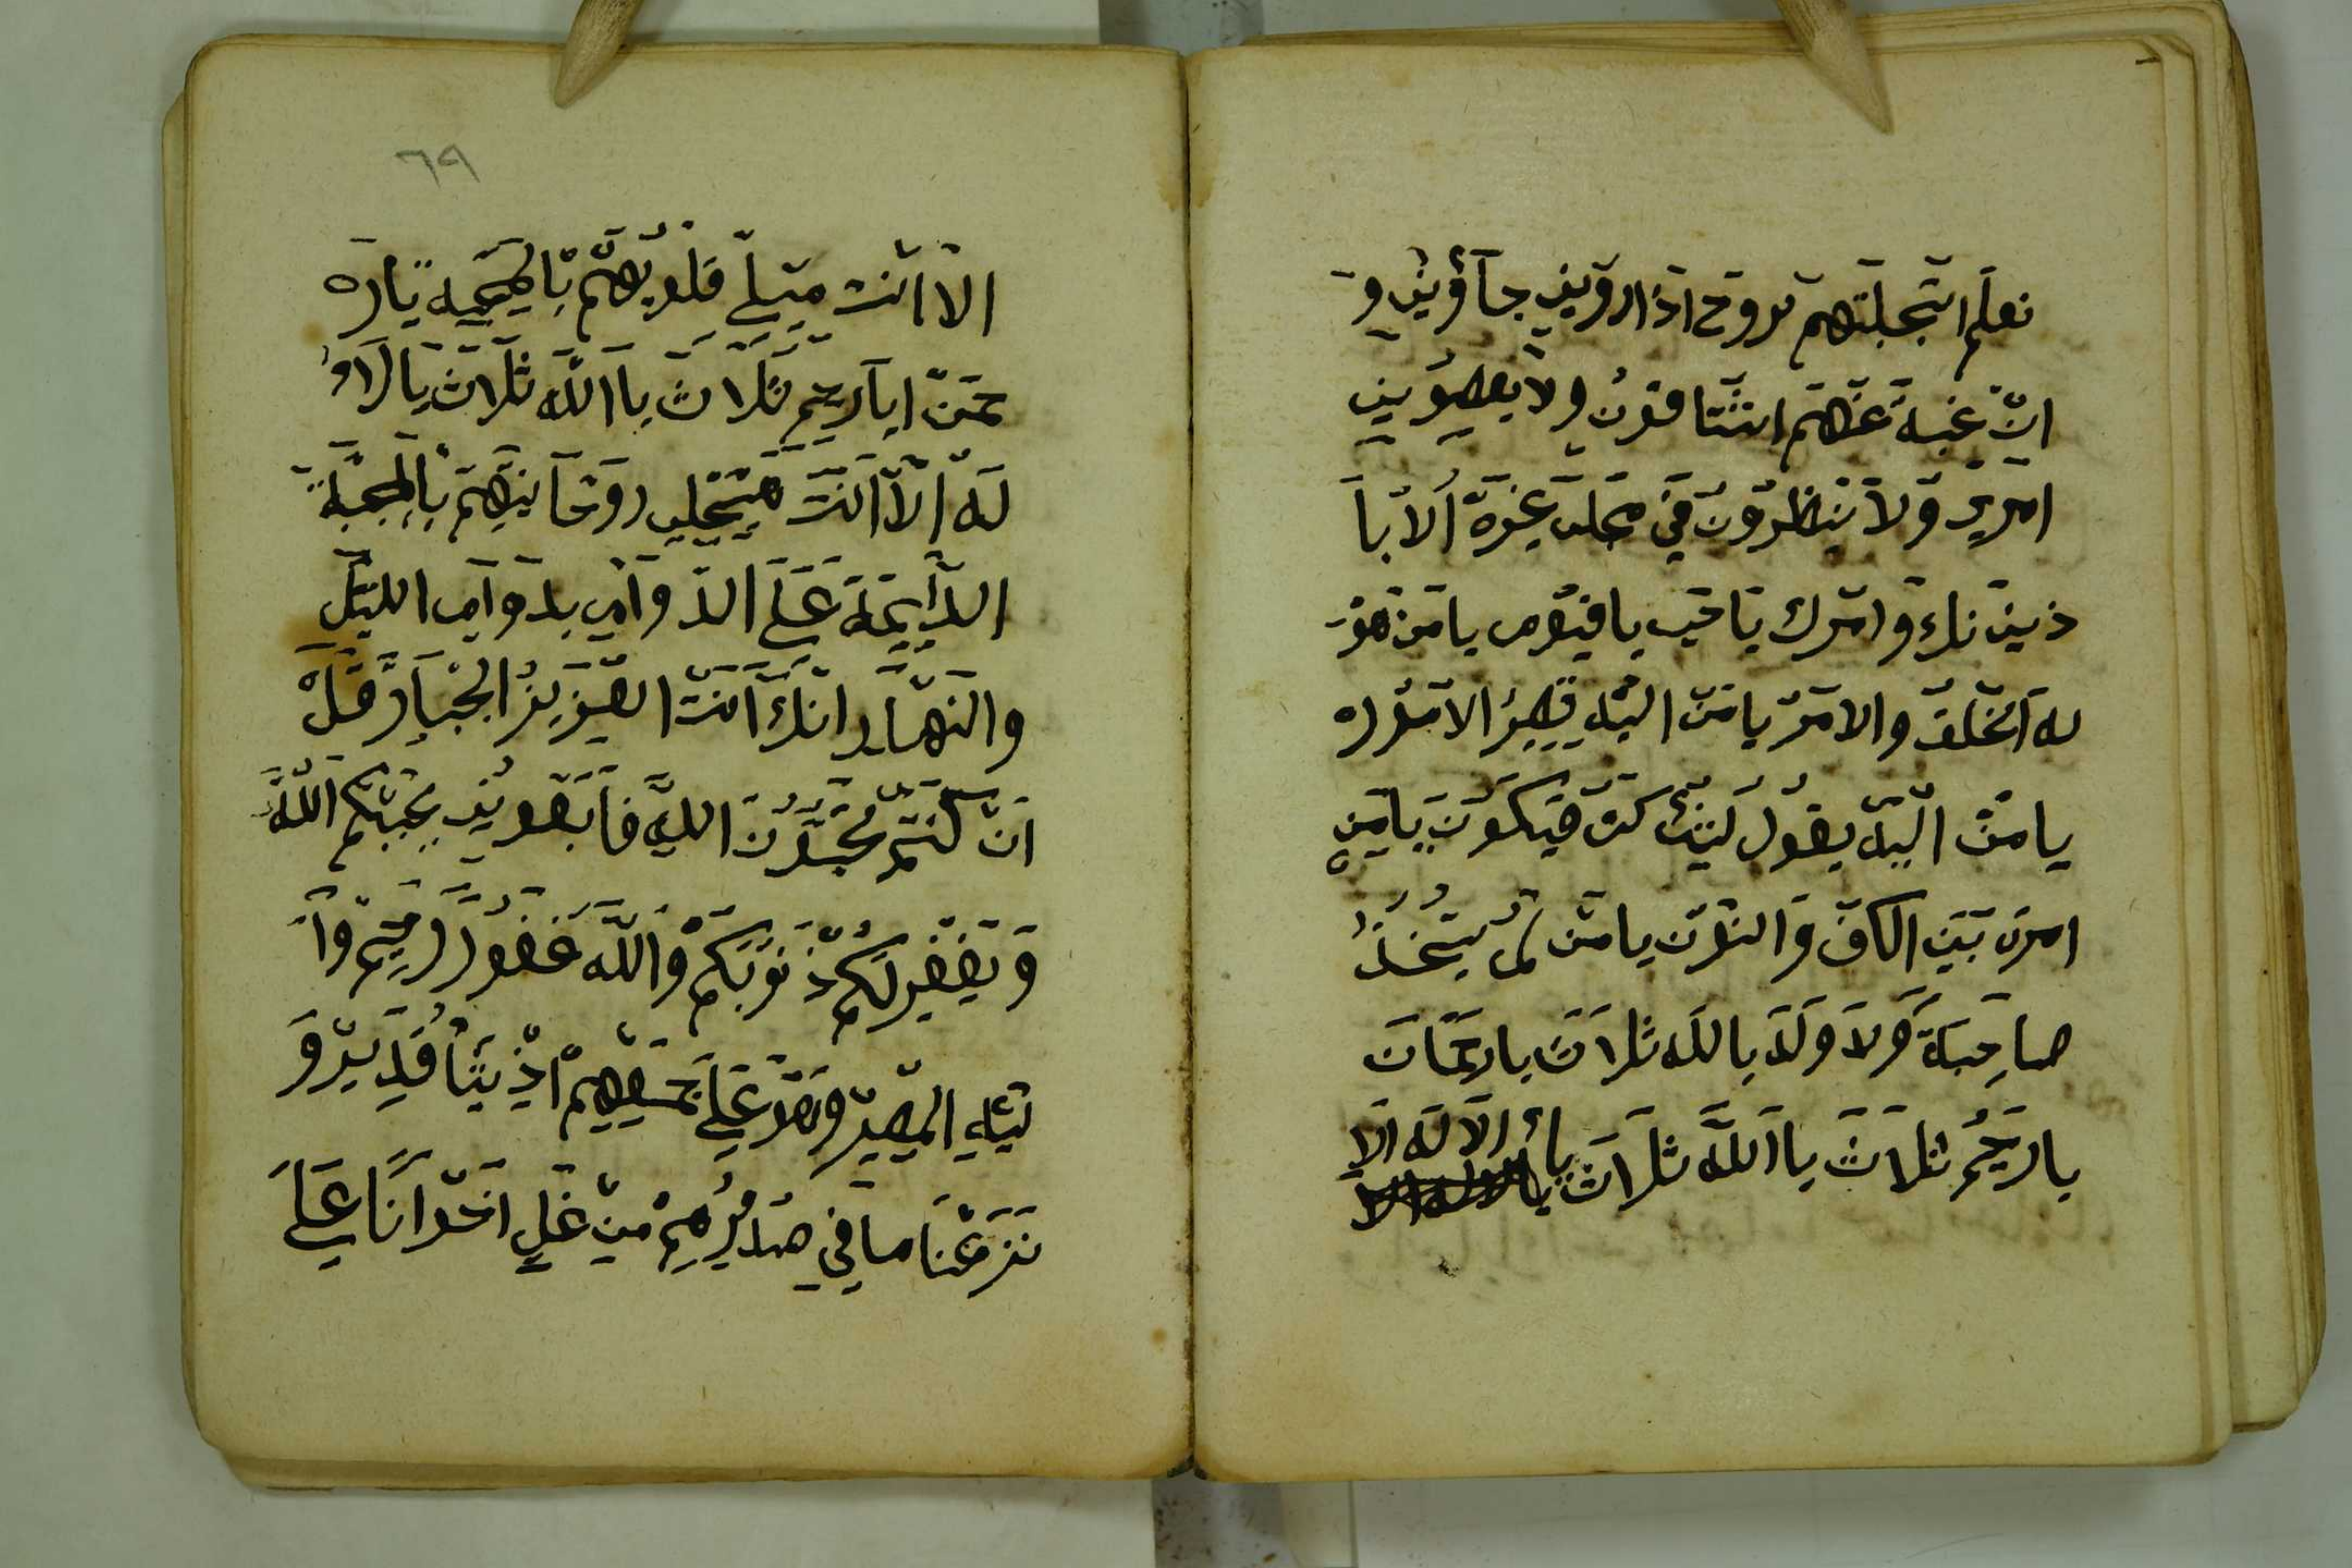 نعلم اتجبلتهم تروح اذا روين جآؤين و
ان غبة عنهم انتتاقون ولا يعصون
امري ولا ينظرون في محلت غيره الا با
ذين نك وامرك يا حي يا فيوم يا من هو
له الخلق والامر يا من اليه يصير الامور
يا من اليه يقول لشئ كن فيكون يا من
امره بين الكاف والنون يا من لم يتخذ
صاحبة ولا ولد يا الله ثلاث يا رحمان
يا رحيم ثلاث يا الله ثلاث يا الاله الا
٦٩
الا انت ميل قلوبهم بالمحبه يا ره
حمن ايا رحيم ثلاث يا الله ثلاث يا لاا
له الا انت هيجلي روحانيتهم بالمحبة
الدايمة على الدوام بدوام الليل
والنهار انك انت العزيز الجبار قل
ان كنتم تحبون الله فابعوني يحببكم الله
ويغفر لكم ذنوبكم والله غفور رحيم وا
ليه المصير وهو على جمعهم اذ يشا قدير و
نزعنا ما في صدورهم من غل اخوانا على